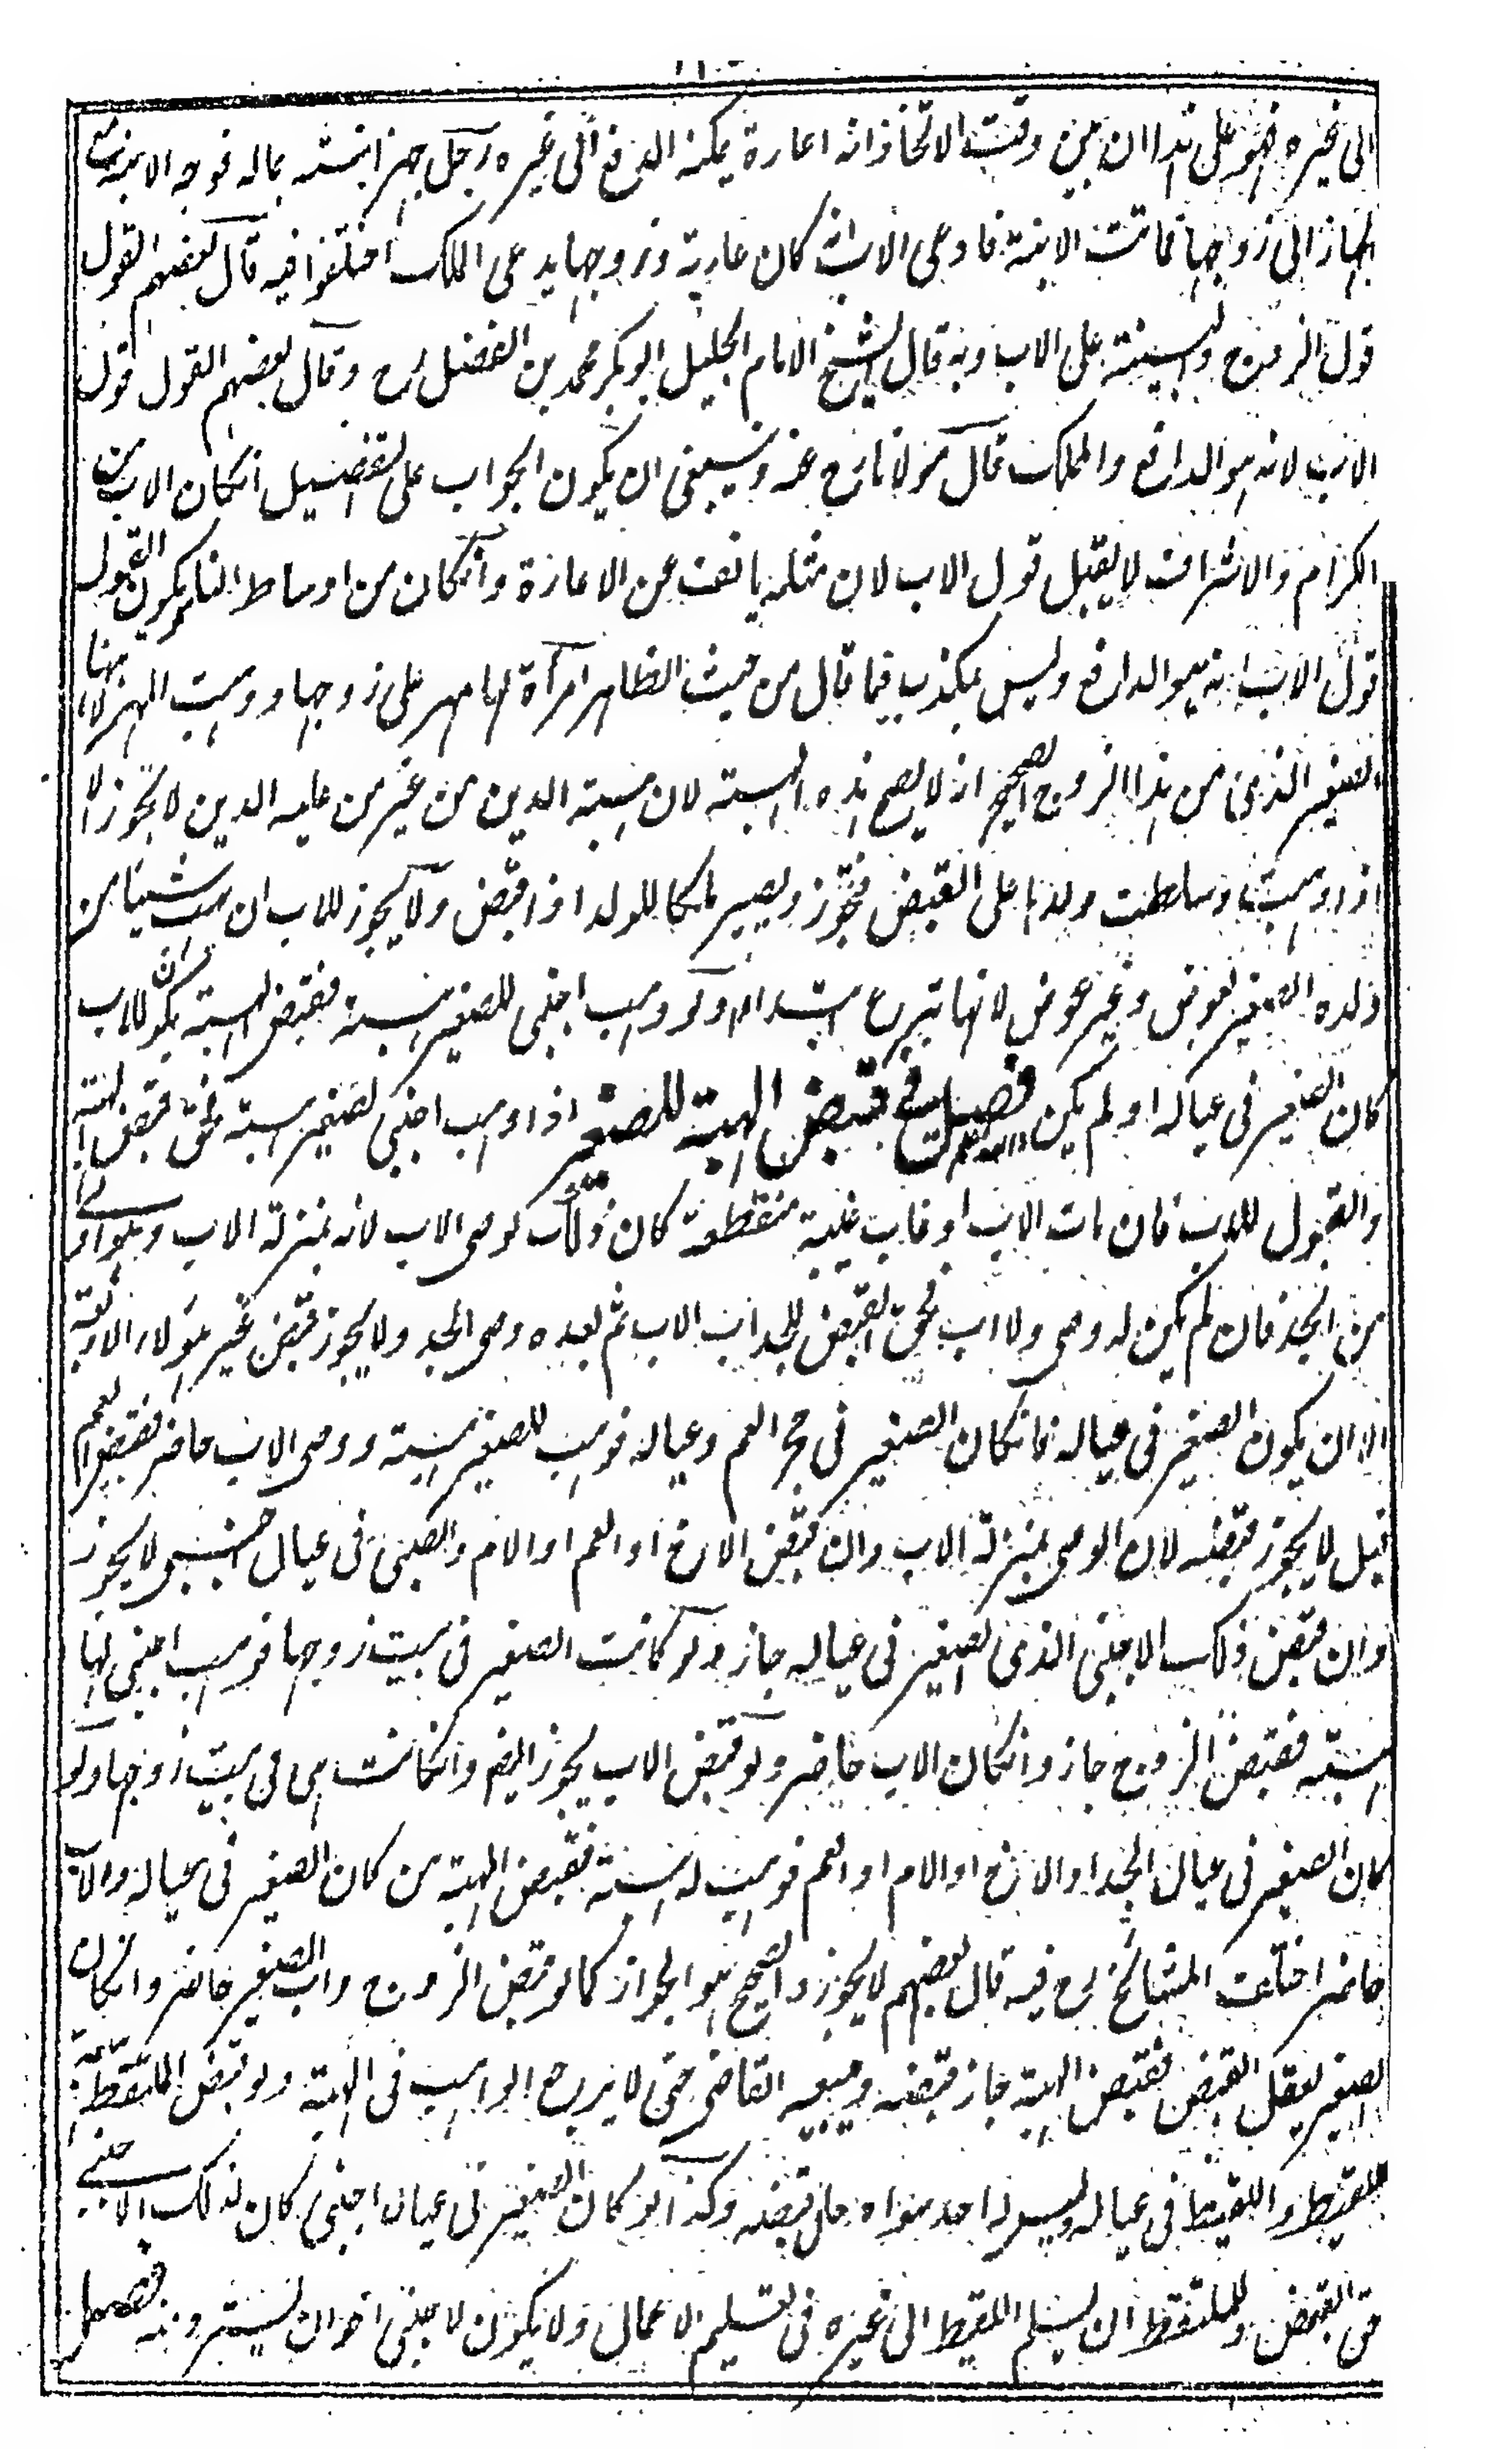 الى غيره فهو على هذا ان بين وقت الاتخاذ انه اعارة يمكنه الدفع الى غيره رجل جهز ابنته بماله فوجه الابنة مع
الجهاز الى زوجها فماتت الابنة فادعى الاب انه كان عارية وزوجها يدعى الملك اختلفوا فيه قال بعضهم القول
قول الزوج والبينة على الاب وبه قال الشيخ الامام الجليل ابو بكر محمد بن الفضل رح وقال بعضهم القول قول
الاب لانه هو الدافع والمملك قال مولانا رضى عنه وينبغى ان يكون الجواب على التفصيل انكان الاب من
الكرام والاشراف لا يقبل قول الاب لان مثله يانف عن الاعارة وانكان من اوساط الناس يكون القول
قول الاب لانه هو الدافع وليس بمكذب فيما قال من حيث الظاهر امرأة لها مهر على زوجها ووهبت المهر لابنها
الصغير الذى من هذا الزوج الصحيح انه لا يصح هذه الهبة لان هبة الدين من غير من عليه الدين لا تجوز الا
اذا وهبت وسلطت ولدها على القبض فتجوز ويصير ملكا للولد اذا قبض ولا يجوز للاب ان يهب شيئا من
ولده الصغير بعوض وغير عوض لانها تبرع ابتداء ولو وهب اجنبى للصغير هبة فقبض الهبة يكون للاب ان
كان الصغير فى عياله او لم يكن فصل فى قبض الهبة للصغير اذا وهب اجنبى لصغير هبة فحق قبض الهبة
والقبول للاب فان مات الاب او غاب غيبة منقطعة كان ذلك لوصى الاب لانه بمنزلة الاب وهو اولى
من الجد فان لم يكن له وصى ولا اب فحق القبض للجد اب الاب ثم بعده وصى الجد ولا يجوز قبض غير هؤلاء الاربعة
الا ان يكون الصغير فى عياله فانكان الصغير فى حجر العم وعياله فوهب للصغير هبة ووصى الاب حاضر فقبض العم
قيل لا يجوز قبضه لان الوصى بمنزلة الاب وان قبض الاخ او العم او الام والصبى فى عيال اجنبى لا يجوز
وان قبض ذلك الاجنبى الذى الصغير فى عياله جاز ولو كانت الصغير فى بيت زوجها فوهب اجنبى لها
هبة فقبض الزوج جاز وانكان الاب حاضر ولو قبض الاب يجوز ايضا وانكانت هى فى بيت زوجها ولو
كان الصغير فى عيال الجد او الاخ او الام او العم فوهبت له هبة فقبض الهبة من كان الصغير فى عياله والاب
حاضر اختلف المشائخ رح فيه قال بعضهم لا يجوز والصحيح هو الجواز كما لو قبض الزوج واب الصغير حاضر وانكان
الصغير يعقل القبض فقبض الهبة جاز قبضه ويبيعه القاضى حتى لا يرجع الواهب فى الهبة ولو قبض الملتقط هبة
للقيط واللقيط فى عياله وليس له احد سواه جاز قبضه وكذا لو كان الصغير فى عيال اجنبى كان لذلك الاجنبى
حق القبض وللملتقط ان يسلم اللقيط الى غيره فى تسليم الاعمال ولا يكون لاجنبى اخر ان يسترده منه فصل